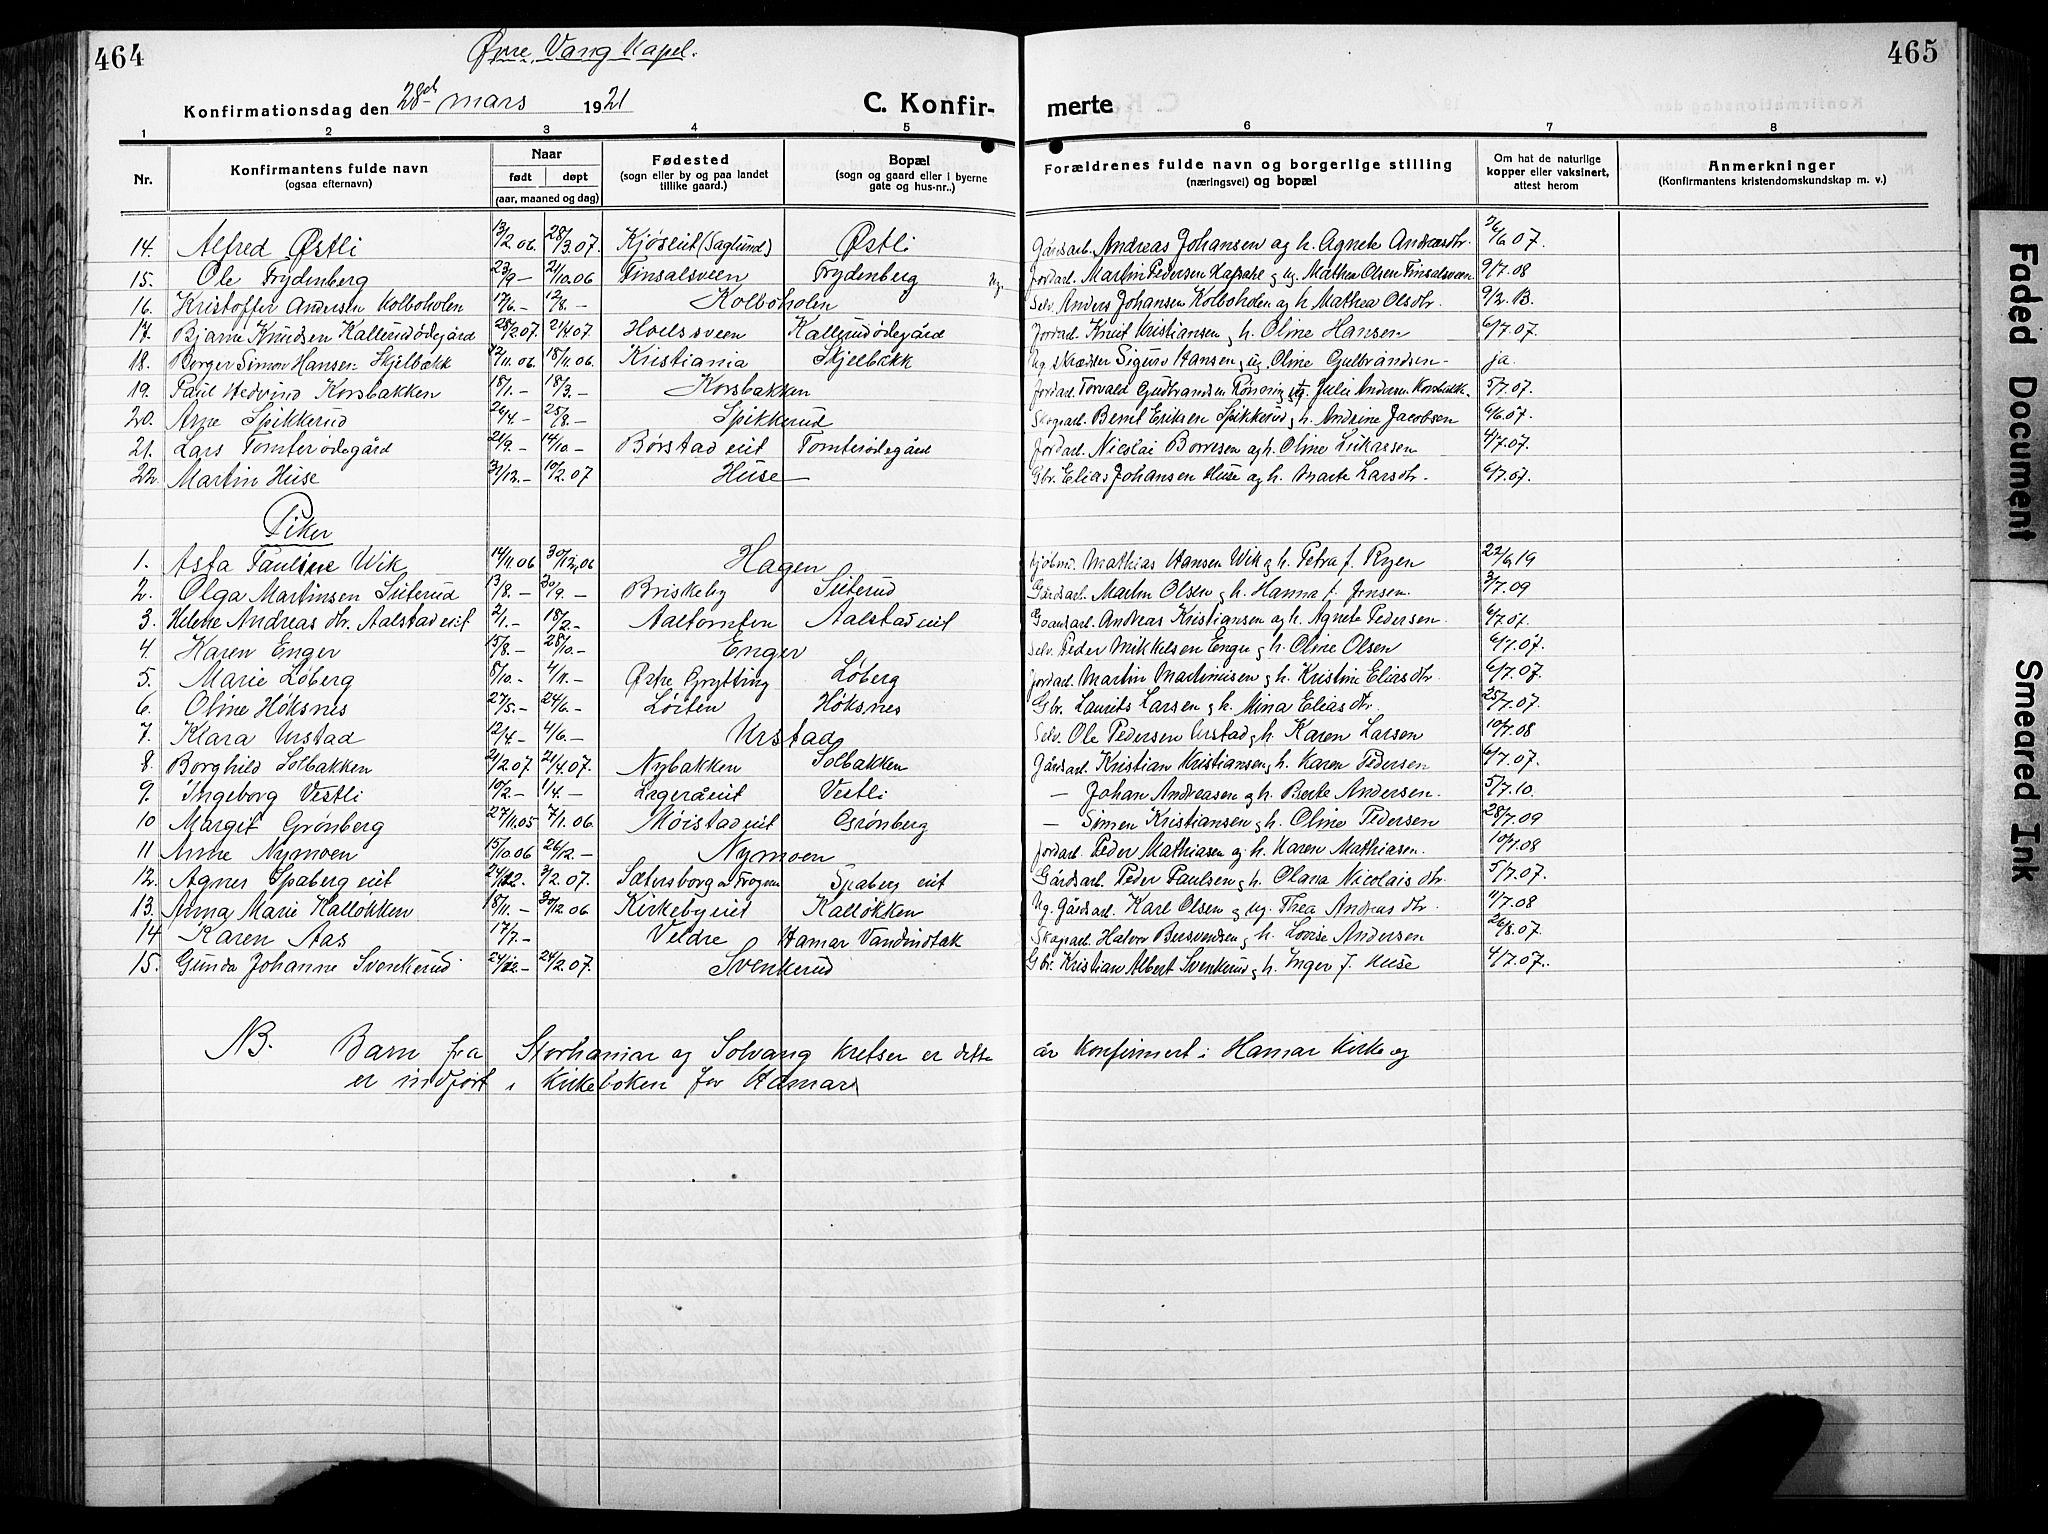 464
Øvre Vang Kapel.
Konfirmationsdag den 28de mars 1921
C. Konfir-
merte
465
1 2 3 4 5 6 7 8
Nr.
Konfirmantens fulde navn
(ogsaa efternavn)
Naar
født døpt
(aar, maaned og dag)
Fødested
(sogn eller by og paa landet
tillike gaard.)
Bopæl
(sogn og gaard eller i byerne
gate og hus-nr..)
Forældrenes fulde navn og borgerlige stilling
(næringsvei) og bopæl
Om hat de naturlige
kopper eller vaksinert,
attest herom
Anmerkninger
(Konfirmantens kristendomskundskap m. v.)
14. Alfred Østli 13/2 06. 28/3 07. Kjøseit (Saglund) Østli Gårdsarb. Andreas Johansen og h. Agnete Andreasdtr. 26/6 07.
15. Ole Frydenberg 23/9 — 21/10 06 Finsalsveen Frydenberg Ug. Jordarb. Martin Pedersen og ug. Mathea Olsen Finsalsveen 9/7 08
16. Kristoffer Andersen Kolboholen 17/6 — 12/8 — Kolboholen Selv. Anders Johansen Kolboholen og h. Mathea Olsdtr. 9/2 13.
17. Bjarne Knudsen Kallerudødegård 28/2 07. 21/4 07 Hoelsveen Kallerudødegård Jordarb. Knut Kristiansen og h. Oline Hansen 6/7 07.
18. Borger Simon Hansen Skjelbækk 12/11 06. 18/11 06. Kristiania Skjelbækk Ug. Skrædder Sigurd Hansen og ug. Oline Gulbrandsen — ja.
19. Paul Hedvind Korsbakken 18/1 — 18/3 — Korsbakken Jordarb. Torvald Gudbrandsen Rønning og ug. Julie Andersen Korsbakk. 5/7 07.
20. Arne Spikkerud 26/4 — 25/8 — Spikkerud Skogsarb. Bernt Eriksen Spikkerud og h. Andrine Jacobsen 6/6 07.
21. Lars Tomterødegård 21/9 — 14/10 — Børstad eit Tomterødegård Jordarb. Nicolai Borresen og h. Oline Lukassen 4/7 07.
22. Martin Huse 31/12 — 10/2 07 Huse Gbr. Elias Johansen Huse og h. Marte Larsdtr. 6/7 07.
Piker
1. Asta Pauline Wik 14/11 06 30/12 06 Hagen Kjøbm. Mathias Hansen Wik og h. Petra f. Ryen 22/9 19
2. Olga Martinsen Sæterud 13/8 — 30/9 — Briskeby Sæterud Gårdsarb. Martin Olsen og h. Hanna f. Jensen. 3/7 09
3. Helene Andreasdtr. Aalstad eit 2/1 — 18/2 — Aaltomten Aalstad eit Gaardsarb. Andreas Kristiansen og h. Agnete Pedersen. 6/7 07.
4. Karen Enger 15/8 — 28/10 — Enger Selv. Peder Mikkelsen Enger og h. Oline Olsen 6/7 07.
5. Marie Løberg 8/10 — 4/11 — Østre Grytting Løberg Jordarb. Martin Martinusen og h. Kristine Eliasdtr 6/7 07.
6. Oline Høksnes 27/5 — 24/6 — Løiten Høksnes Gbr. Laurits Larsen og h. Mina Eliasdtr. 25/7 07.
7. Klara Urstad 12/4 — 4/6 — Urstad Selv. Ole Pedersen Urstad og h. Karen Larsen 10/7 08
8. Borghild Solbakken 21/2 07. 21/4 07. Nybakken Solbakken Gårdsarb. Kristian Kristiansen og h. Karen Pedersen 6/7 07.
9. Ingeborg Vestli 10/2 — 1/4 — Lageråeit Vestli — Johan Andreasen og h. Berte Andersen. 5/7 10.
10 Margit Grønberg 27/11 05 7/1 06. Møistad eit Grønberg — Simen Kristiansen og h. Oline Pedersen 28/7 09
11 Anne Nymoen 15/10 06 26/12 — Nymoen Jordarb. Peder Mathiasen og h. Karen Mathiasen. 10/7 08
12. Agnes Spaberg eit 24/12. 3/2 07. Sætersborg Spaberg eit Gårdsarb. Peder Paulsen og h. Olava Nicolaisdtr. 5/7 07.
13. Anna Marie Kalløkken 18/11 — 30/12 06 Kirkeby eit Kalløkken Ug. Gårdsarb. Karl Olsen og ug. Thea Andreasdtr. 11/7 08
14 Karen Aas 17/7 — Veldre Hamar Vandindtak Skogsarb. Halvor Bersvendsen og h. Lovise Andersen 26/8 07.
15. Gunda Johanne Svenkerud 24/12 — 24/2 07. Svenkerud Gbr. Kristian Albert Svenkerud og h. Inger J. Huse 4/7 07.
NB. Barn fra Storhamar og Solvang Kretser er dette år konfirmert i Hamar Kirke og
er indført i Kirkeboken for Hamar
Faded Document
Smeared Ink